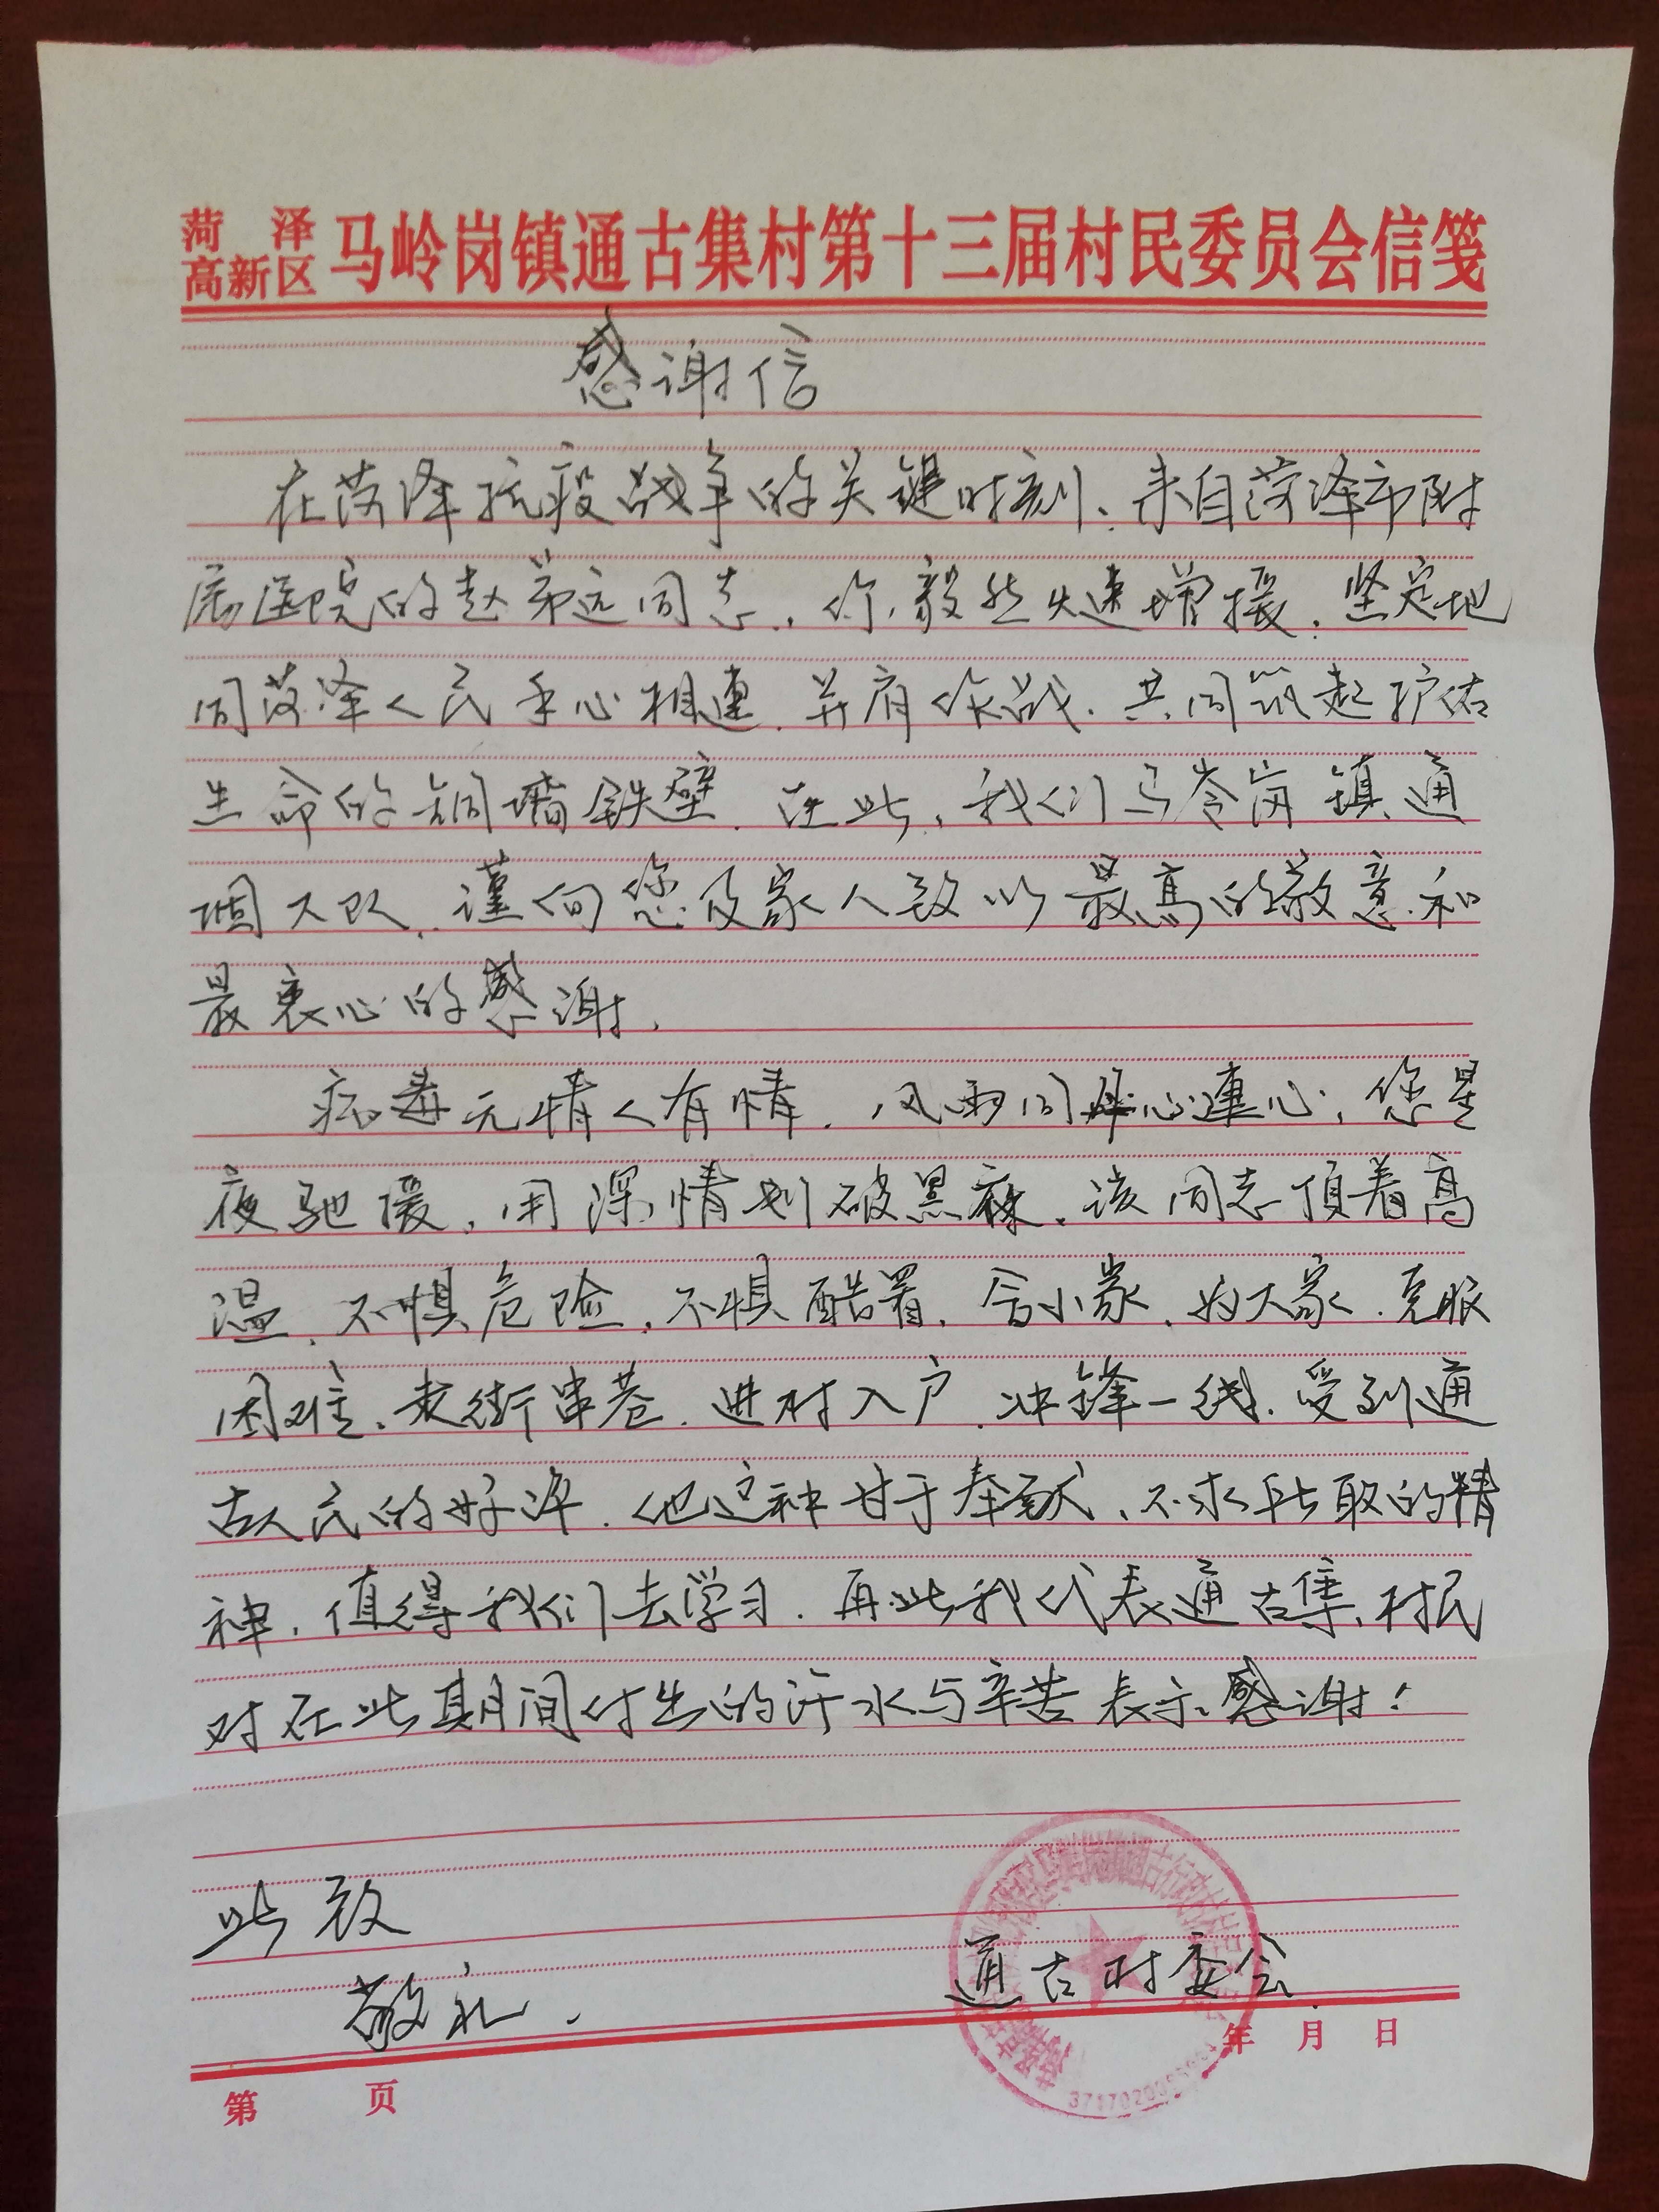 菏泽
高新区 马岭岗镇通古集村第十三届村民委员会信笺
感谢信
在菏泽抗疫战争的关键时刻、来自菏泽市附
属医院的赵弟远同志，你毅然火速增援，坚定地
同菏泽人民手心相連，并肩作战，共同筑起护佑
生命的铜墙铁壁，在此，我们马岺岗镇通
大队，谨向您及家人致以最高的敬意和
最衷心的感谢，
病毒无情人有情，风雨同舟心連心，您星
夜驰援，用深情划破黑寐，该同志顶着高
温，不惧危险，不惧酷署，舍小家，为大家，克服
困难、走街串巷，进村入户，冲锋一线，受到通
古人民的好评，他这种甘于奉献、不求所取的精
神，值得我们去学习，再此我代表通古集村民
对在此期间付出的汗水与辛苦表示感谢！
此致
敬礼，
通古村委会
年 月 日
第 页